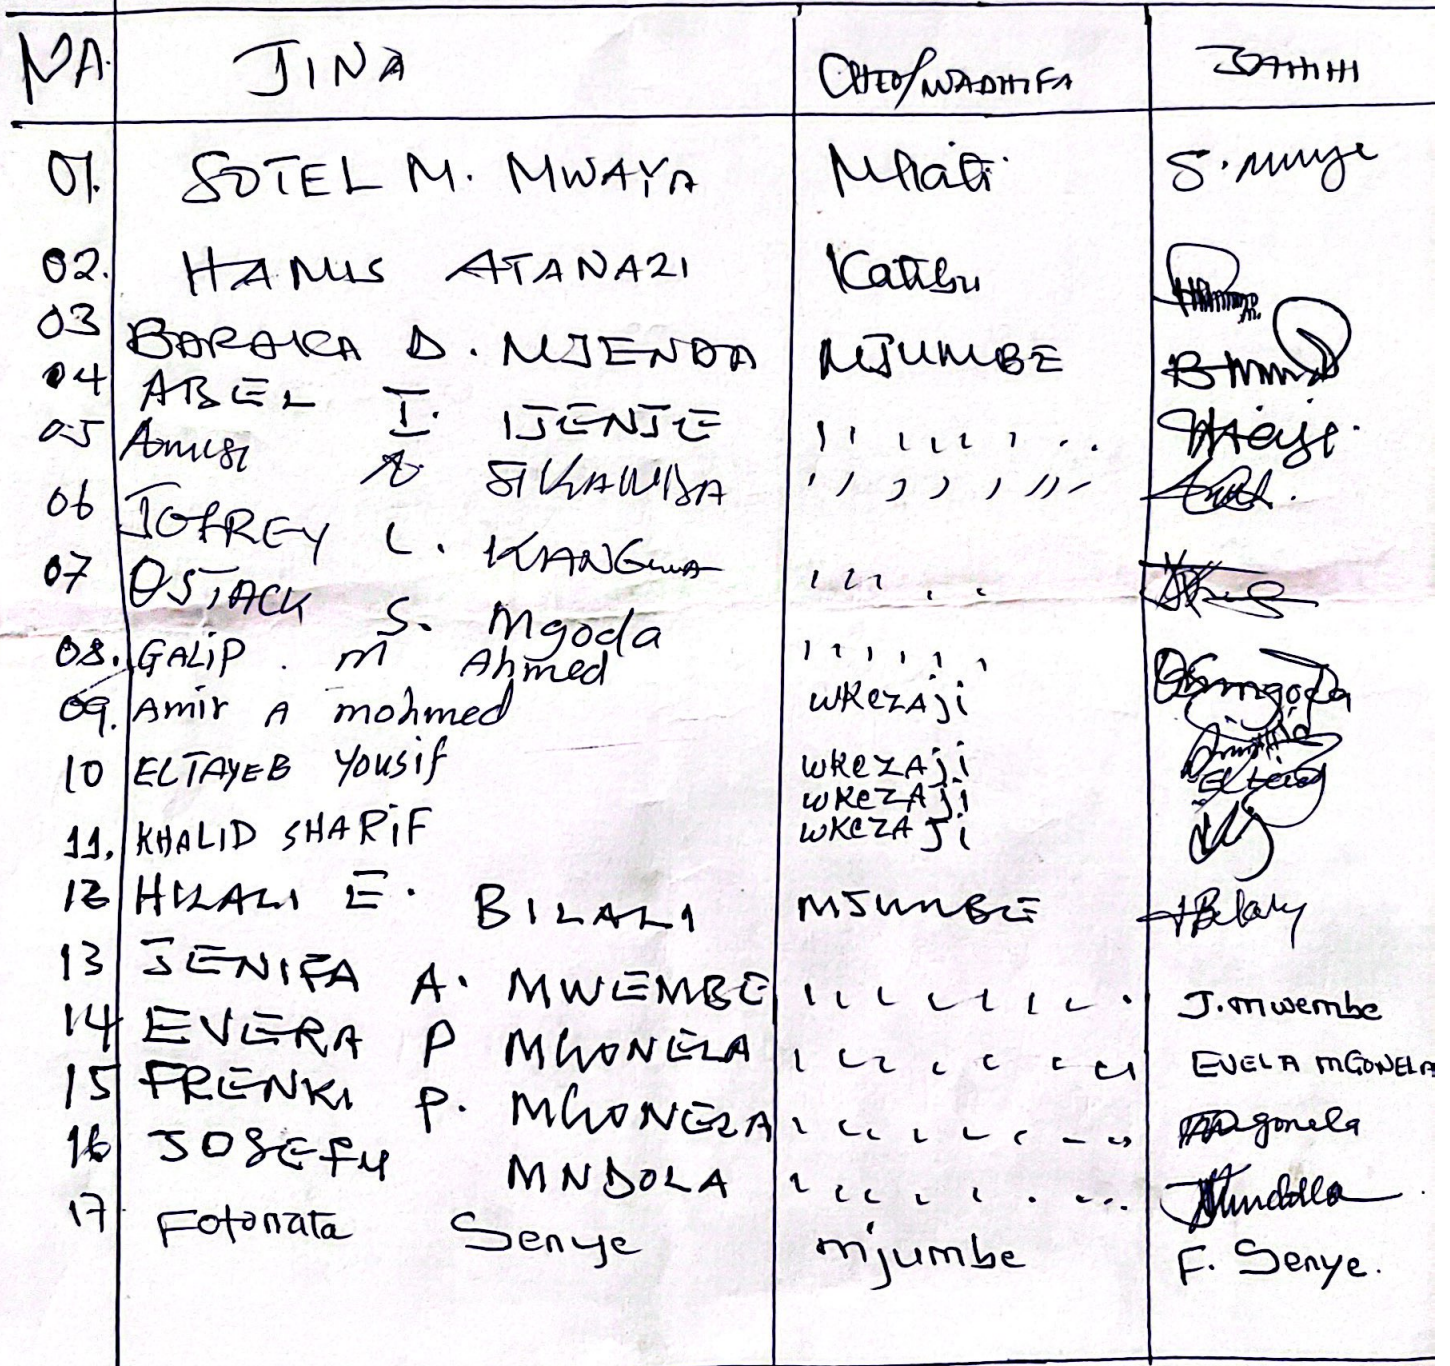 NA. JINA CHEO/WADHIFA SAHIHI
01. SOTEL M. MWAYA Mhati S. muye
02. HAMIS ATANAZI Katibu
03 BARAKA D. MJENDA MJUMBE
04 ABEL I. IJENJE '' '' '' ''
05 Amusi SIKAWBA '' '' '' ''
06 JOFREY L. KIANGwa '' '' ''
07 OSTACK S. Mgoda '' '' ''
08. GALIP. M Ahmed WKezAji OSmgoda
09. Amir A mohmed WKeZAji
10 ELTAYEB Yousif WKeZAji
11. KHALID SHARIF WKeZA Ji
12 HILALI E. BILALI MJUMBE HBilaly
13 JENIFA A. MWEMBE '' '' '' '' J. mwembe
14 EVERA P MGONELA '' '' '' '' EVELA MGONELA
15 FRENKI P. MGONELA '' '' '' ''
16 JOSEFU MNDOLA '' '' '' ''
17 Fotonata Senye mjumbe F. Senye.